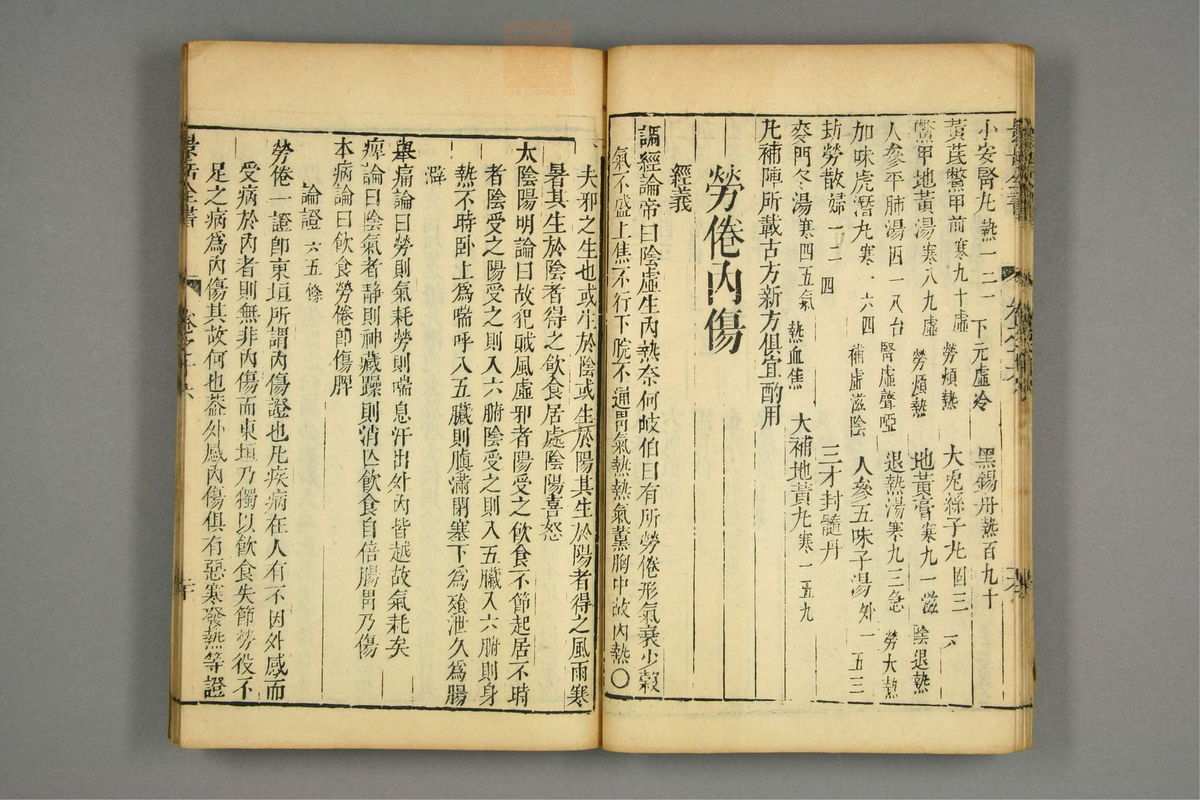 小安腎丸 熱一二一 下元虛冷 黑錫丹 熱百九十
黃芪鱉甲煎 寒九十 虛勞煩熱 大兎絲子丸 固三六
鱉甲地黃湯 寒八九 虛勞煩熱 地黃膏 寒九一 滋陰退熱
人參平肺湯 因一八台 腎虛聲啞 退熱湯 寒九三 急勞大熱
加味虎潛丸 寒一六四 補虛滋陰 人參五味子湯 外一五三
劫勞散 婦一二四 三才封髓丹
麥門冬湯 寒四五 氣熱血焦 大補地黃丸 寒一五九
凡補陣所載古方新方俱宜酌用
勞倦內傷
經義
調經論帝曰陰虛生內熱奈何岐伯曰有所勞倦形氣衰少穀
氣不盛上焦不行下脘不通胃氣熱熱氣薰胸中故內熱〇
夫邪之生也或生於陰或生於陽其生於陽者得之風雨寒
暑其生於陰者得之飲食居處陰陽喜怒
太陰陽明論曰故犯賊風虛邪者陽受之飲食不節起居不時
者陰受之陽受之則入六腑陰受之則入五臟入六腑則身
熱不時卧上為喘呼入五臟則䐜滿閉塞下為飱泄久為腸
澼
舉痛論曰勞則氣耗勞則喘息汗出外內皆越故氣耗矣
痺論曰陰氣者靜則神藏躁則消亾飲食自倍腸胃乃傷
本病論曰飲食勞倦卽傷脾
論證 六五 條
勞倦一證卽東垣所謂內傷證也凡疾病在人有不因外感而
受病於內者則無非內傷而東垣乃獨以飲食失節勞役不
足之病爲內傷其故何也葢外感內傷俱有惡寒發熱等證
景岳全書
卷之十六